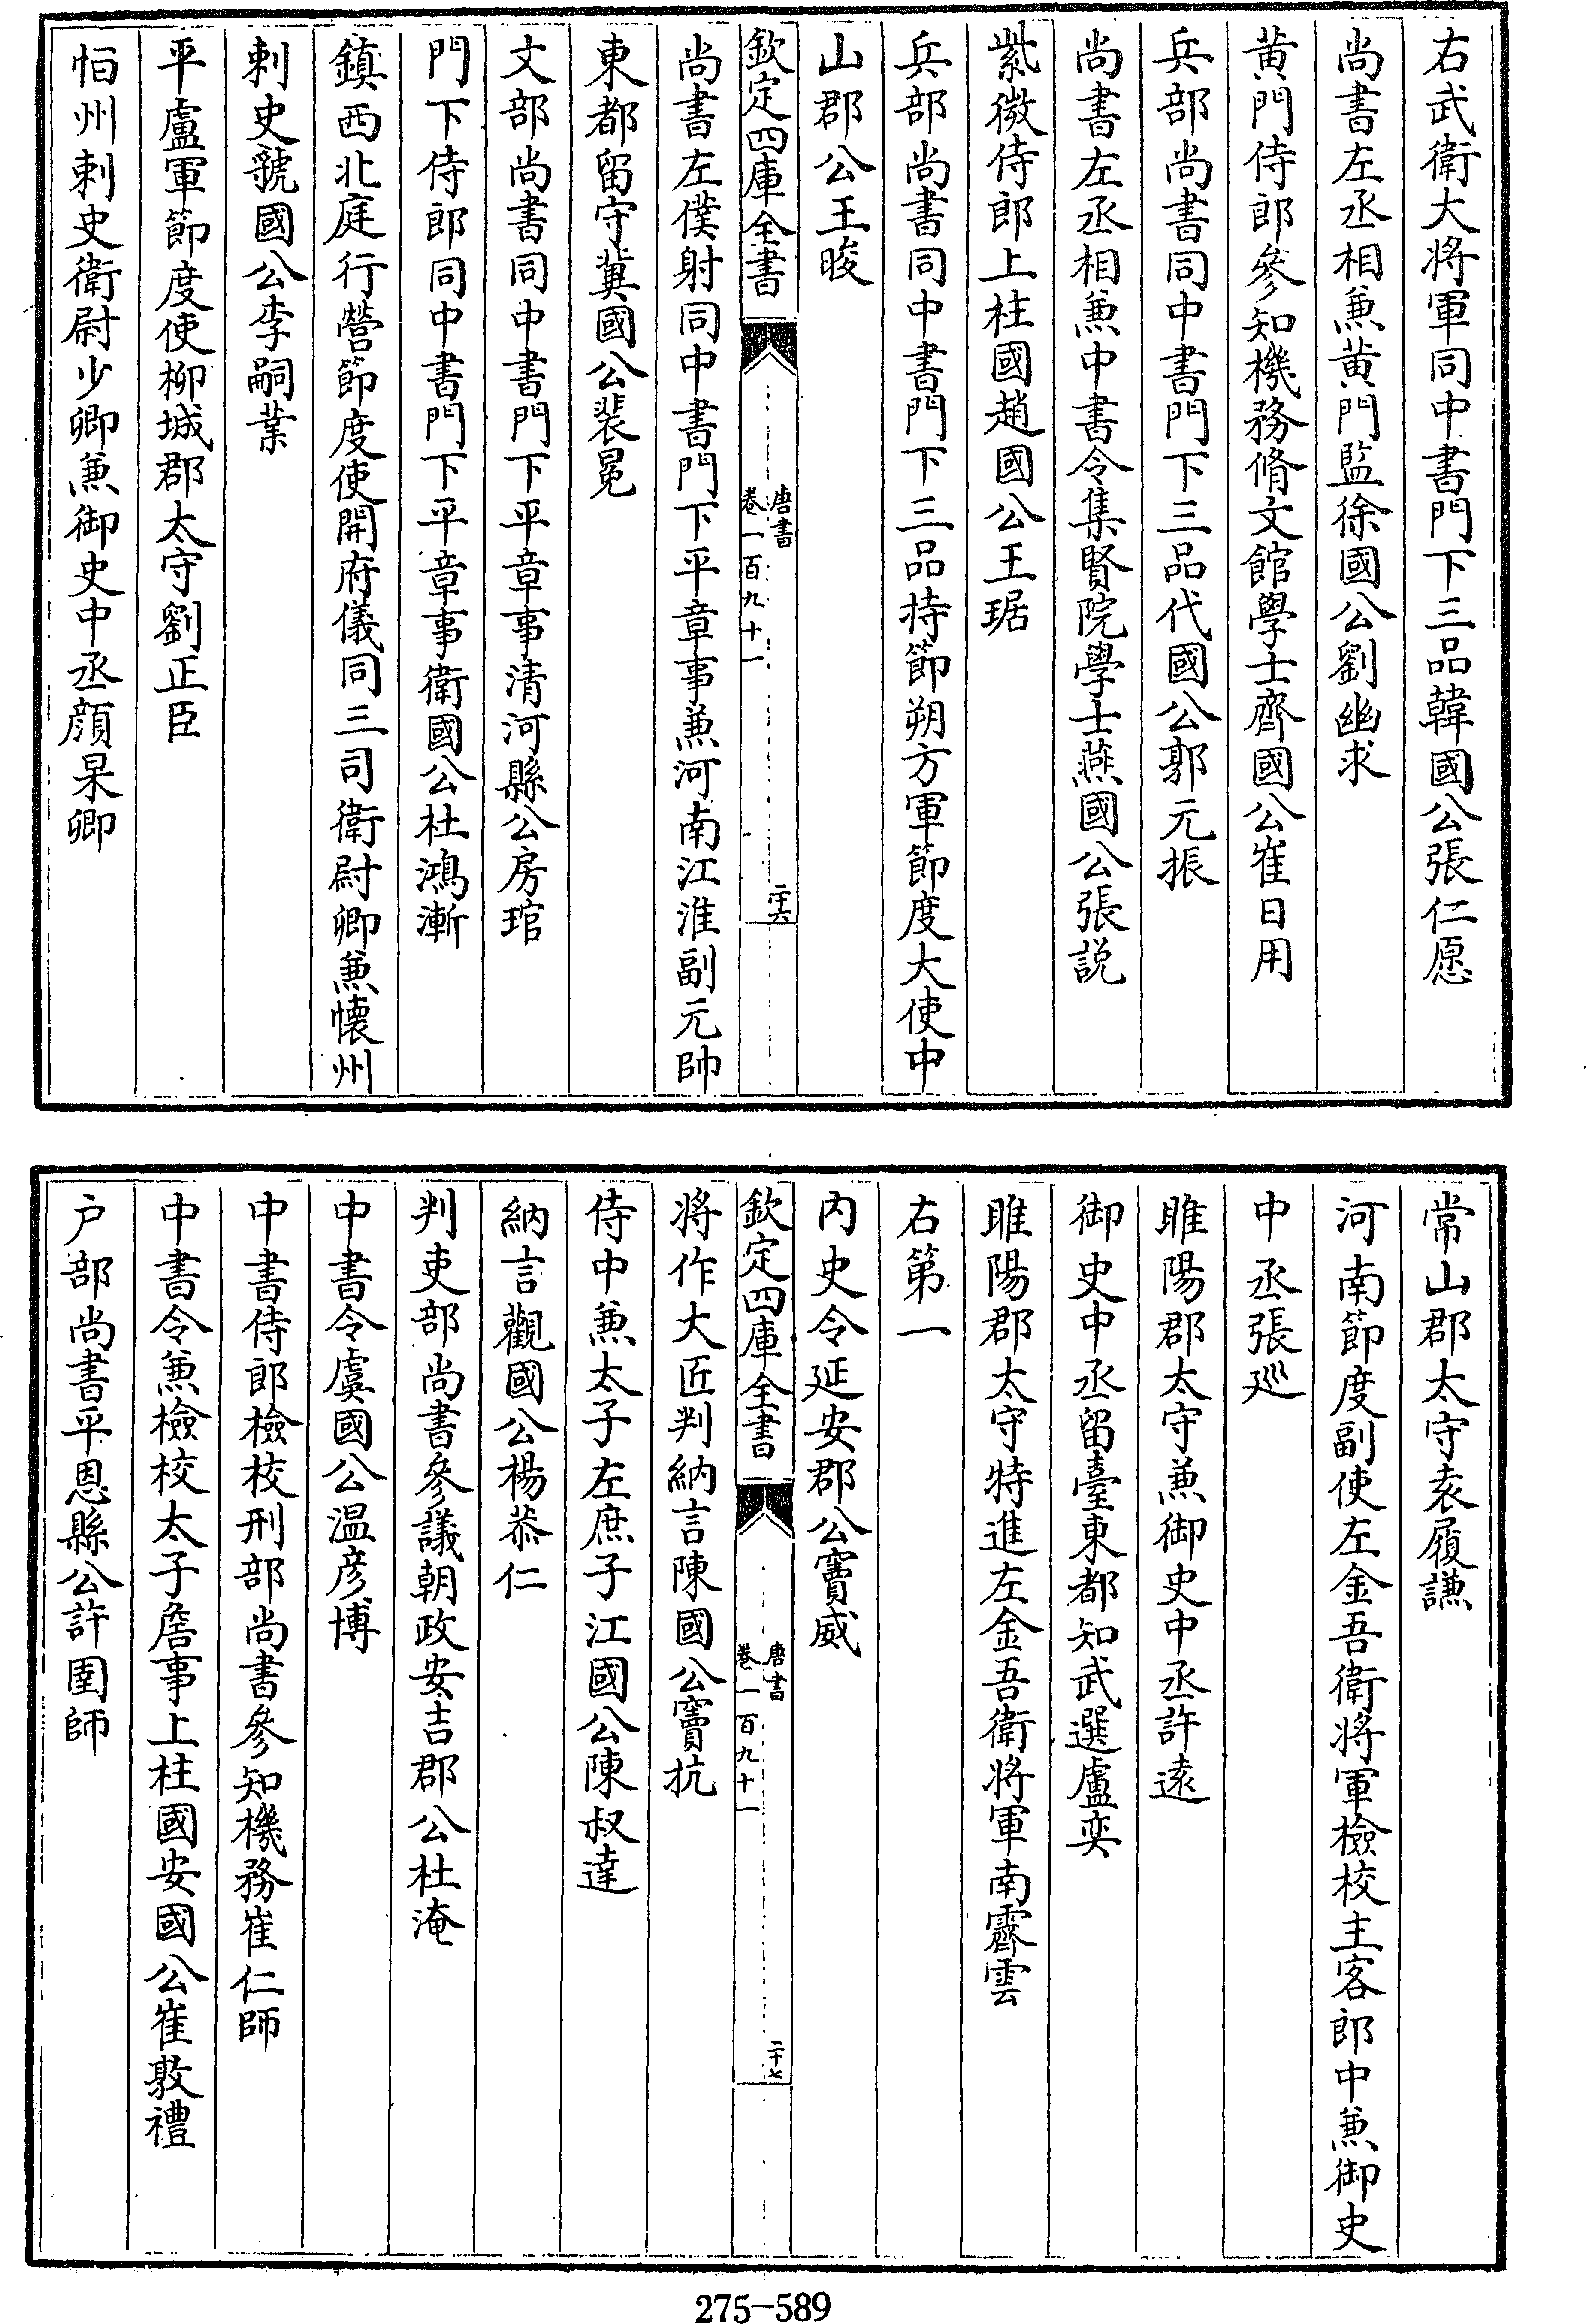 右武衛大將軍同中書門下三品韓國公張仁愿
尚書左丞相兼黄門監徐國公劉幽求
黄門侍郎參知機務脩文館學士齊國公崔日用
兵部尚書同中書門下三品代國公郭元振
尚書左丞相兼中書令集賢院學士燕國公張説
紫微侍郎上柱國趙國公王琚
兵部尚書同中書門下三品持節朔方軍節度大使中
山郡公王晙
欽定四庫全書
唐書
卷一百九十一
二十六
尚書左僕射同中書門下平章事兼河南江淮副元帥
東都留守冀國公裴冕
文部尚書同中書門下平章事清河縣公房琯
門下侍郎同中書門下平章事衛國公杜鴻漸
鎮西北庭行營節度使開府儀同三司衛尉卿兼懷州
刺史虢國公李嗣業
平盧軍節度使柳城郡太守劉正臣
恒州刺史衛尉少卿兼御史中丞顔杲卿
常山郡太守袁履謙
河南節度副使左金吾衛將軍檢校主客郎中兼御史
中丞張廵
睢陽郡太守兼御史中丞許遠
御史中丞留臺東都知武選盧奕
睢陽郡太守特進左金吾衛將軍南霽雲
右第一
内史令延安郡公竇威
欽定四庫全書
唐書
卷一百九十一
二十七
將作大匠判納言陳國公竇抗
侍中兼太子左庶子江國公陳叔達
納言觀國公楊恭仁
判吏部尚書參議朝政安吉郡公杜淹
中書令虞國公温彦博
中書侍郎檢校刑部尚書參知機務崔仁師
中書令兼檢校太子詹事上柱國安國公崔敦禮
户部尚書平恩縣公許圉師
275-589